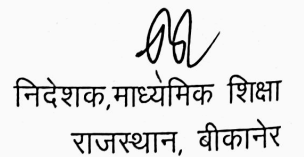 निदेशक,माध्यमिक शिक्षा
राजस्थान, बीकानेर